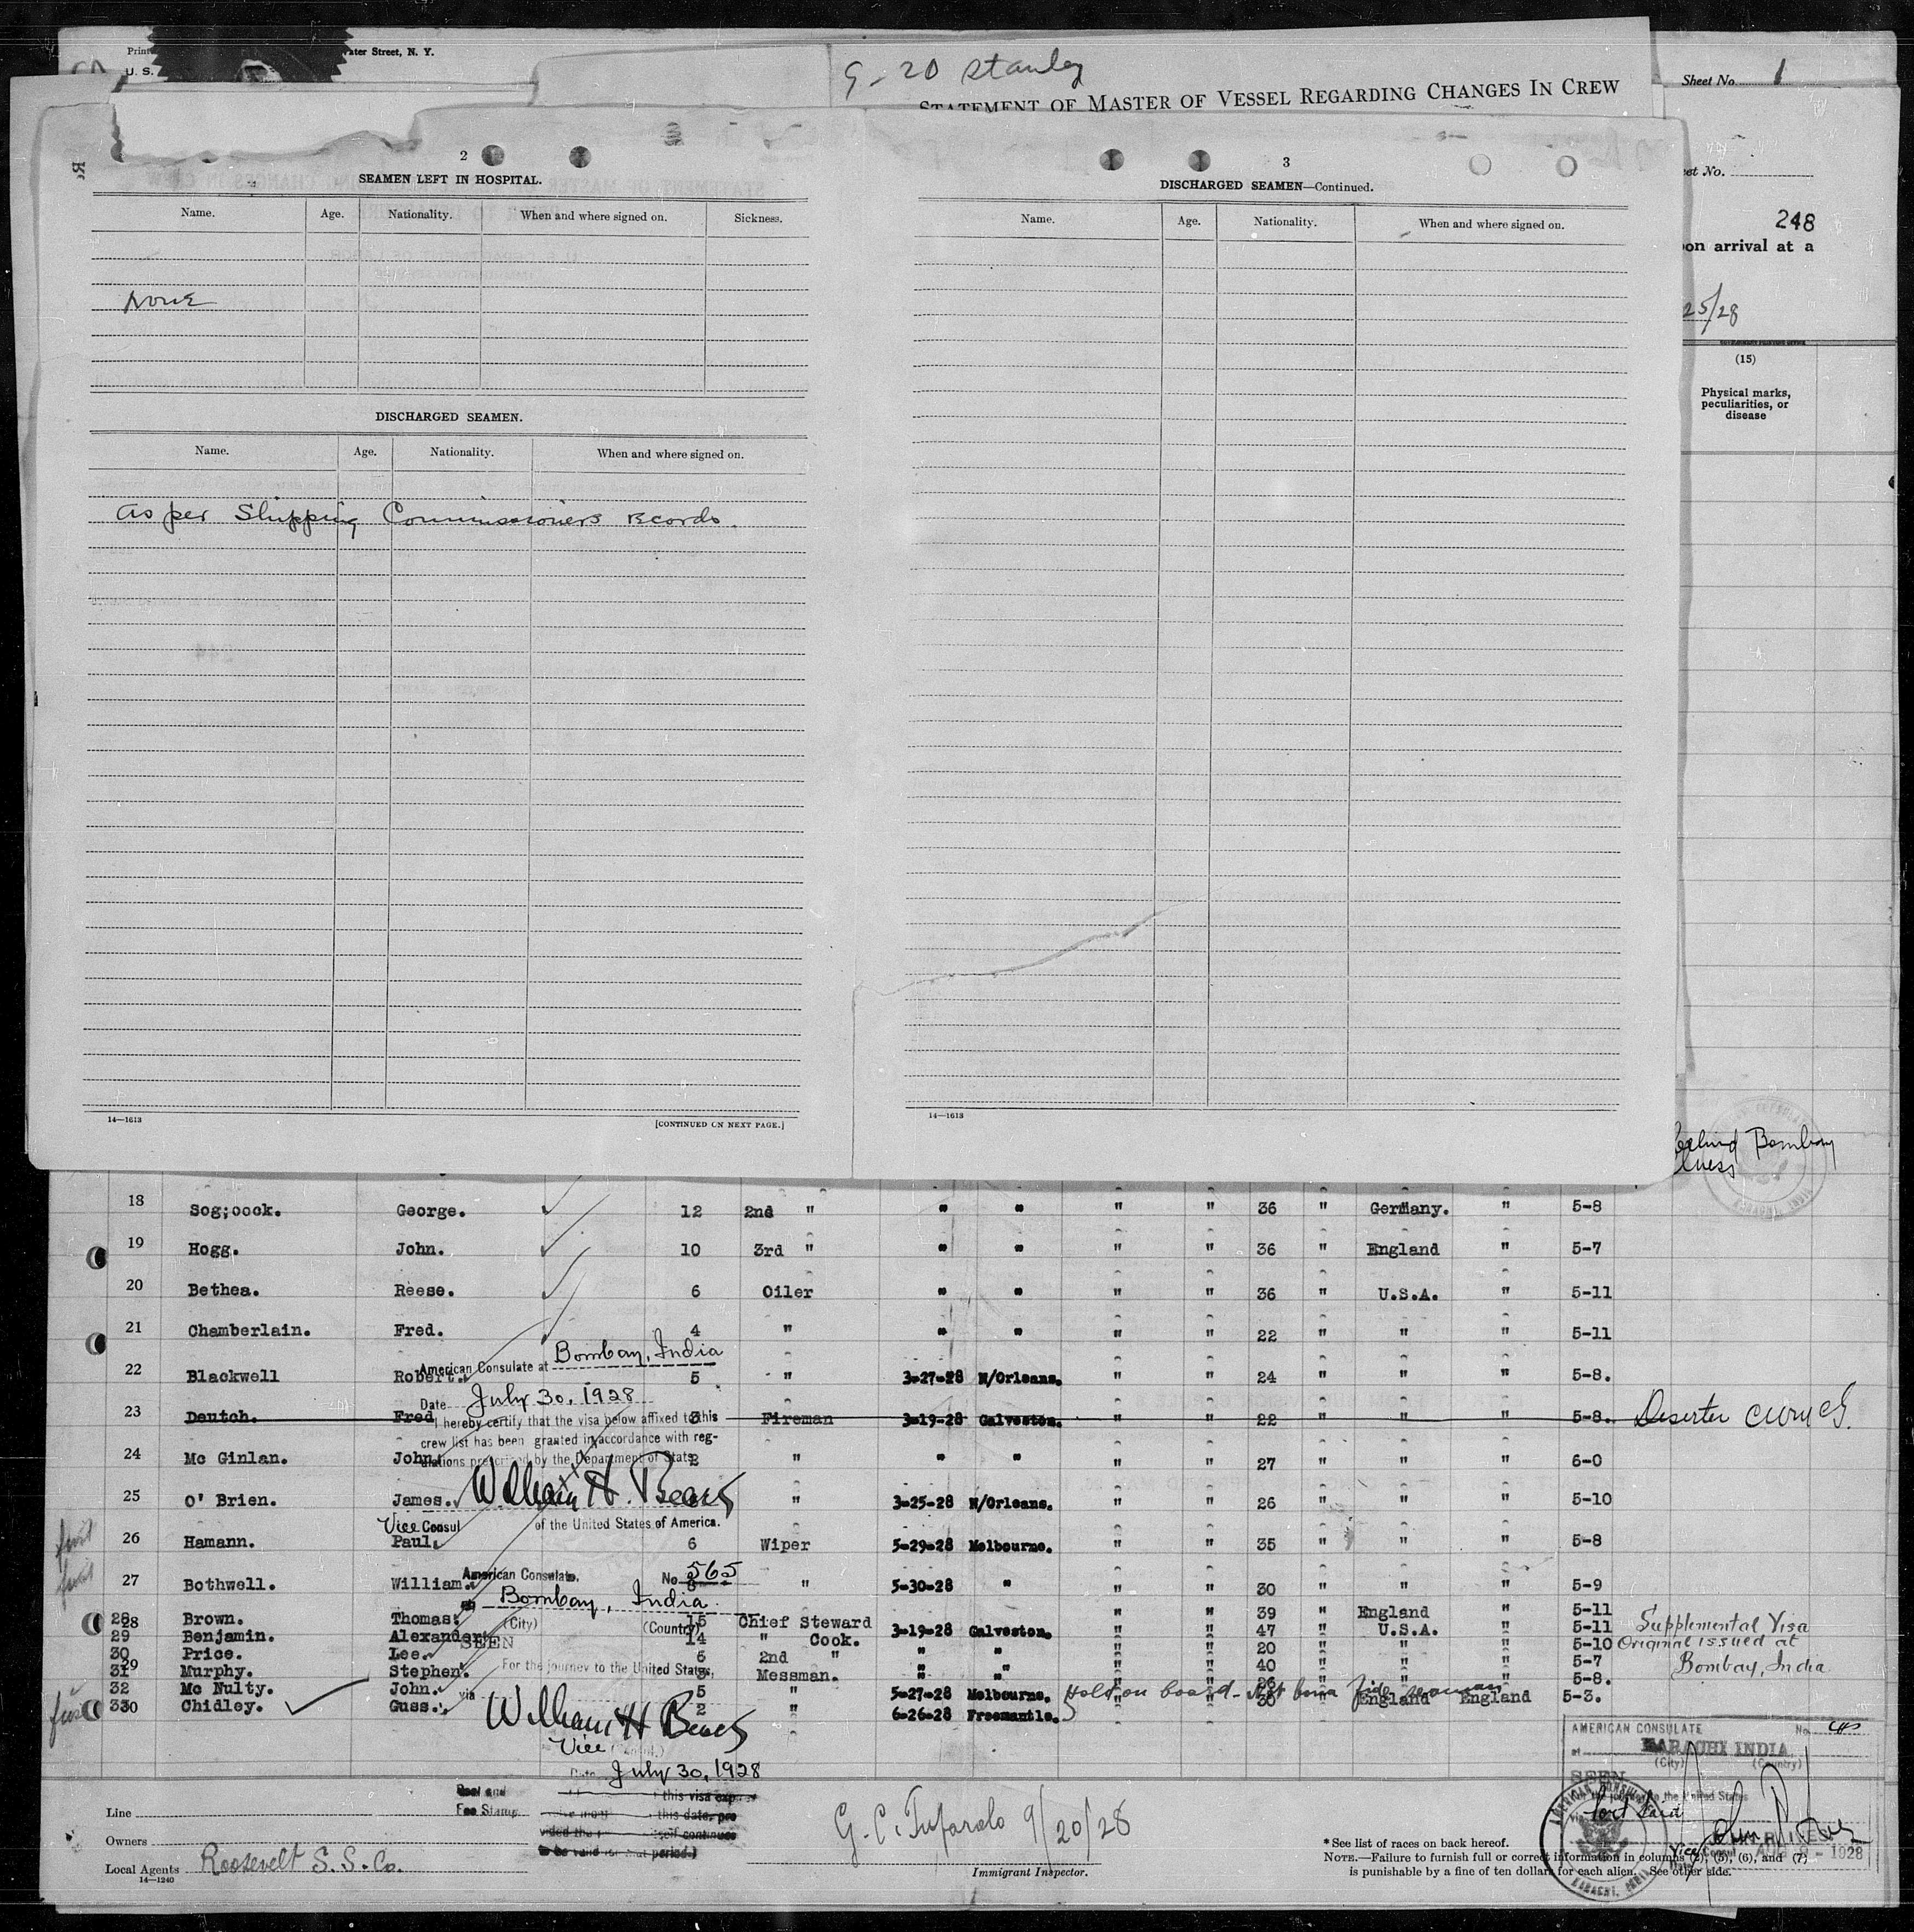 ater Street, N. Y.
U. S.
G-20 Stanley
STATEMENT OF MASTER OF VESSEL REGARDING CHANGES IN CREW
Sheet No. 1
et No.
248
on arrival at a
25/28
(15)
Physical marks, peculiarities, or disease
2
SEAMEN LEFT IN HOSPITAL.
Name. Age. Nationality. When and where signed on. Sickness.
None
DISCHARGED SEAMEN.
Name. Age. Nationality. When and where signed on.
As per Shipping Commissioners Records.
14—1613
[CONTINUED ON NEXT PAGE.]
3
DISCHARGED SEAMEN—Continued.
Name. Age. Nationality. When and where signed on.
14—1613
Behind Bombay
18 Sog;oock. George. 12 2nd " " " " " 36 " Germany. " 5-8
19 Hogg. John. 10 3rd " " " " " 36 " England " 5-7
20 Bethea. Reese. 6 Oiler " " " " 36 " U.S.A. " 5-11
21 Chamberlain. Fred. 4 " " " " " 22 " " " 5-11
22 Blackwell Robert. 5 " 3-27-28 N/Orleans. " " 24 " " " 5-8.
23 Deutch. Fred 3 Fireman 3-19-28 Galveston. " " 22 " " " 5-8. Deserter
24 Mc Ginlan. John. 2 " " " " " 27 " " " 6-0
25 O' Brien. James. " 3-25-28 N/Orleans. " " 26 " " " 5-10
26 Hamann. Paul. 6 Wiper 5-29-28 Melbourne. " " 35 " " " 5-8
27 Bothwell. William. " 5-30-28 " " " 30 " " " 5-9
28 Brown. Thomas. 15 Chief Steward " " 39 " England " 5-11
29 Benjamin. Alexander. 14 " Cook. 3-19-28 Galveston. " " 47 " U.S.A. " 5-11
30 Price. Lee. 6 2nd " " " " " 20 " " " 5-10
31 Murphy. Stephen. Messman. " " " " 40 " " " 5-7
32 Mc Nulty. John. 5 " 5-27-28 Melbourne. " " " " " 5-8.
33 Chidley. Guss. 2 " 6-26-28 Freemantle. " " 30 " England England 5-3.
Hold on board - Not bona fide seaman
Supplemental Visa
Original issued at
Bombay, India
American Consulate at Bombay, India
Date July 30, 1928
I hereby certify that the visa below affixed to this
crew list has been granted in accordance with reg-
ulations prescribed by the Department of State.
William H. Beach
Vice Consul of the United States of America.
American Consulate. No. 565
at Bombay, India.
(City) (Country)
SEEN
For the journey to the United States,
via
William H Beach
Vice
Date July 30, 1928
Fee Stamp
this visa
this date, pro
vided the itself continues
to be valid for that period.)
Line
Owners
Local Agents Roosevelt S. S. Co.
14—1240
G. C. Tufarolo 9/20/28
Immigrant Inspector.
AMERICAN CONSULATE No.
at KARACHI INDIA
(City) (Country)
SEEN
the journey to the United States
Port Said
Vice Consul
1928
AMERICAN CONSULATE
KARACHI, INDIA
* See list of races on back hereof.
NOTE.—Failure to furnish full or correct information in columns (2), (5), (6), and (7)
is punishable by a fine of ten dollars for each alien. See other side.